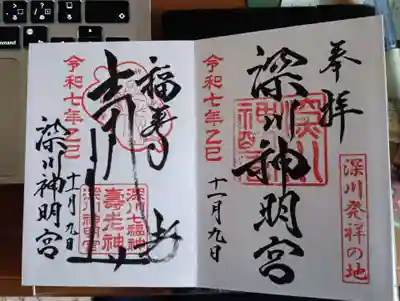 奉拝
深川神明宮
深川神明宮
深川発祥の地
令和七年乙巳
十一月九日
令和七年乙巳
十一月九日
深川神明宮
深川七福神
壽老神
深川神明宮